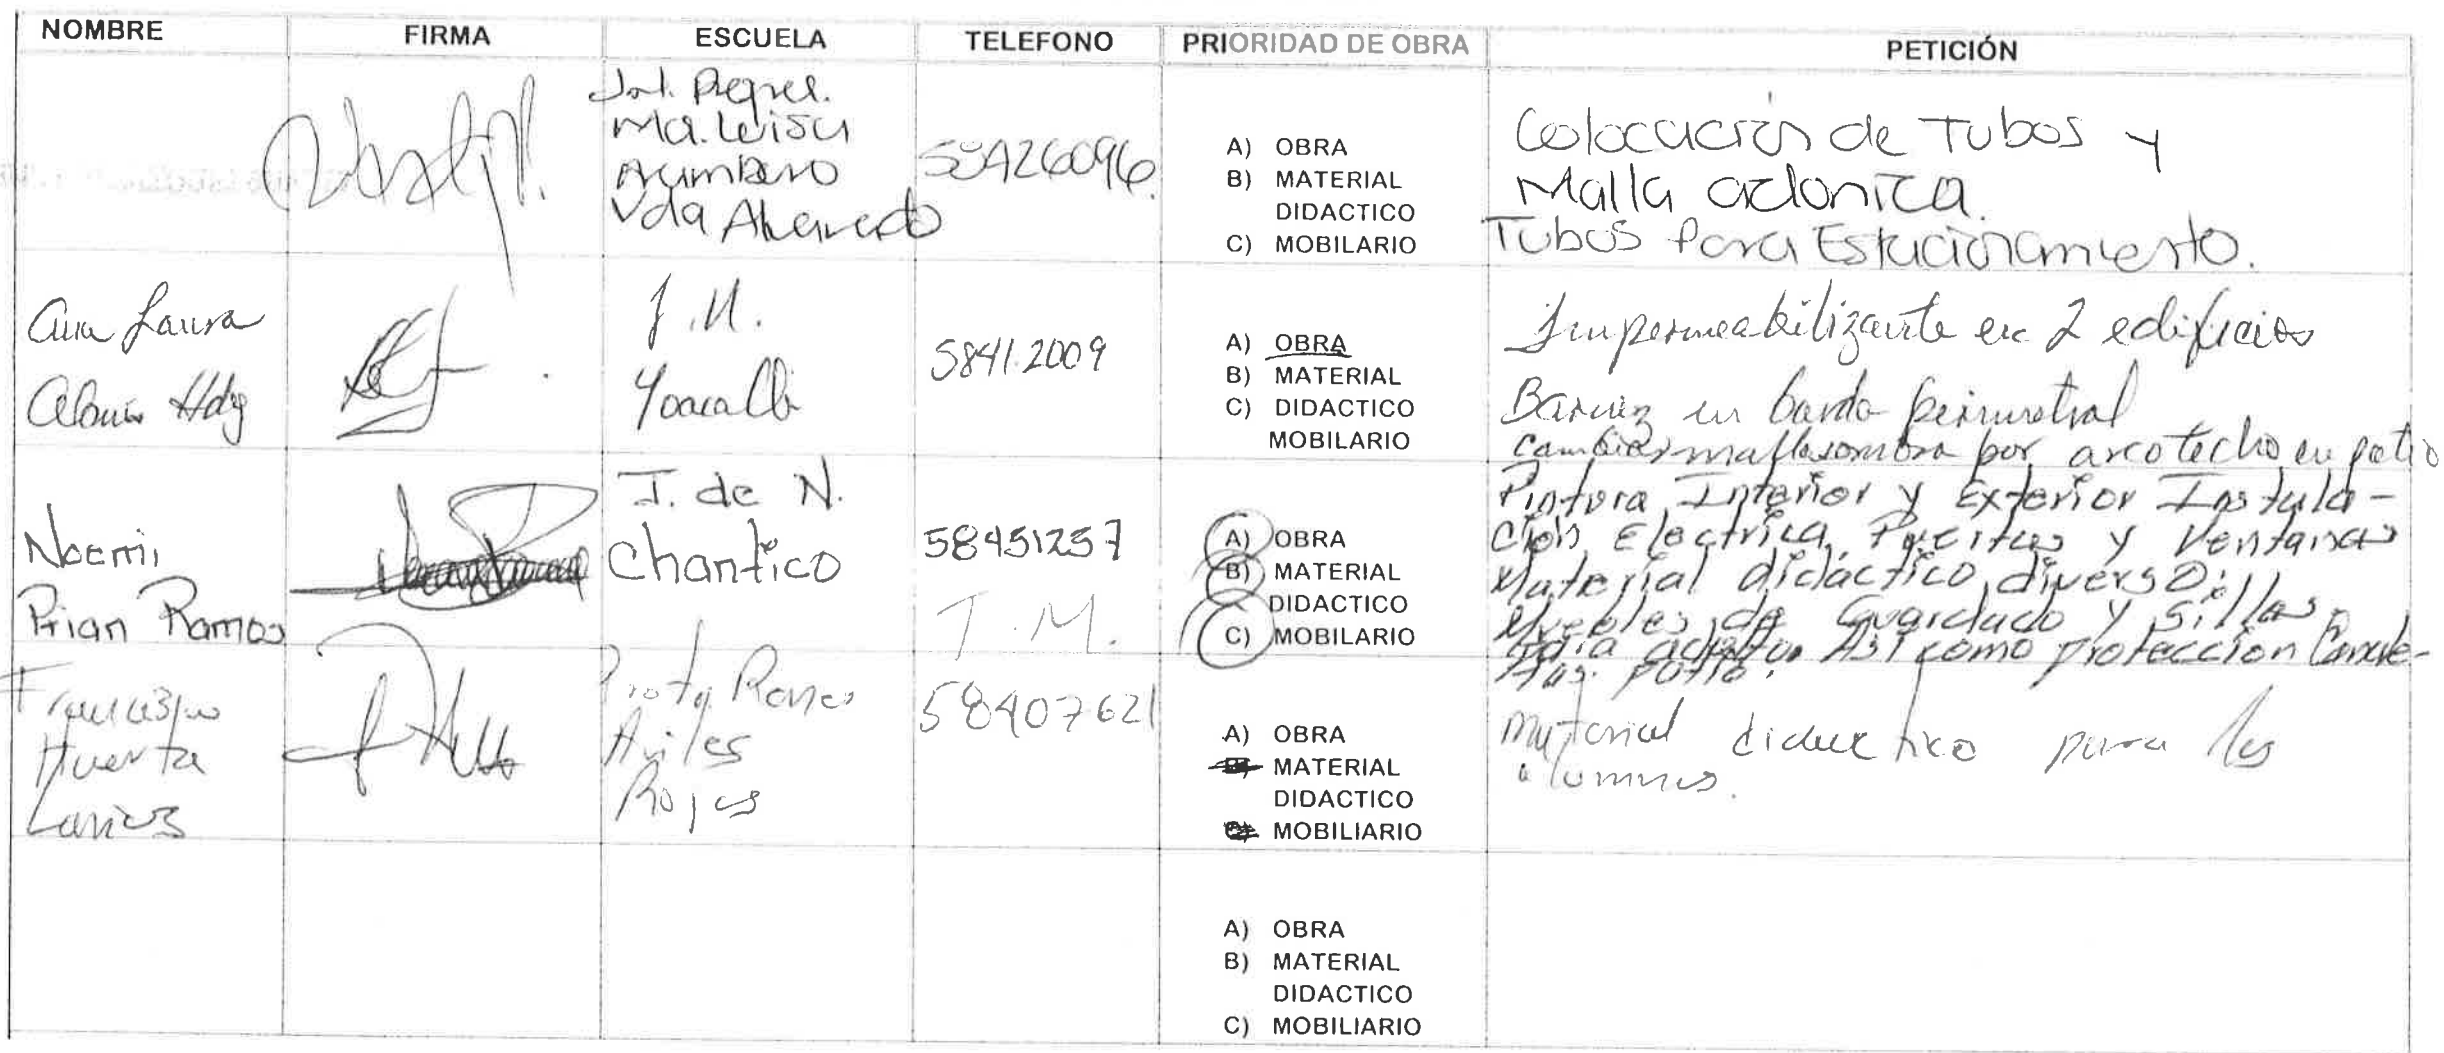 NOMBRE FIRMA ESCUELA TELEFONO PRIORIDAD DE OBRA PETICIÓN
Ma. Luisa
Vda
A) OBRA
B) MATERIAL
DIDACTICO
C) MOBILARIO
Colocación de Tubos y
Malla
Tubos para Estacionamiento.
Ana Laura
Hdz
J.N.
Yoacalli
5841.2009
A) OBRA
B) MATERIAL
C) DIDACTICO
MOBILARIO
Impermeabilizante en 2 edificios
Barniz en barda perimetral
cambiar mallasombra por arcotecho en patio
Noemi
Prian Ramos
J. de N.
Chantico
58451257
A) OBRA
B) MATERIAL
DIDACTICO
C) MOBILARIO
Pintura Interior y Exterior Instala-
ción Electrica, Puertas y Ventanas
Material didáctico diverso.
Muebles de Guardado y sillas
para Así como protección
patio.
Francisco
Huerta
Larios
T.M.
Ramos
Aviles
Rojas
58407621
A) OBRA
MATERIAL
DIDACTICO
MOBILIARIO
Material didactico para los
alumnos.
A) OBRA
B) MATERIAL
DIDACTICO
C) MOBILIARIO